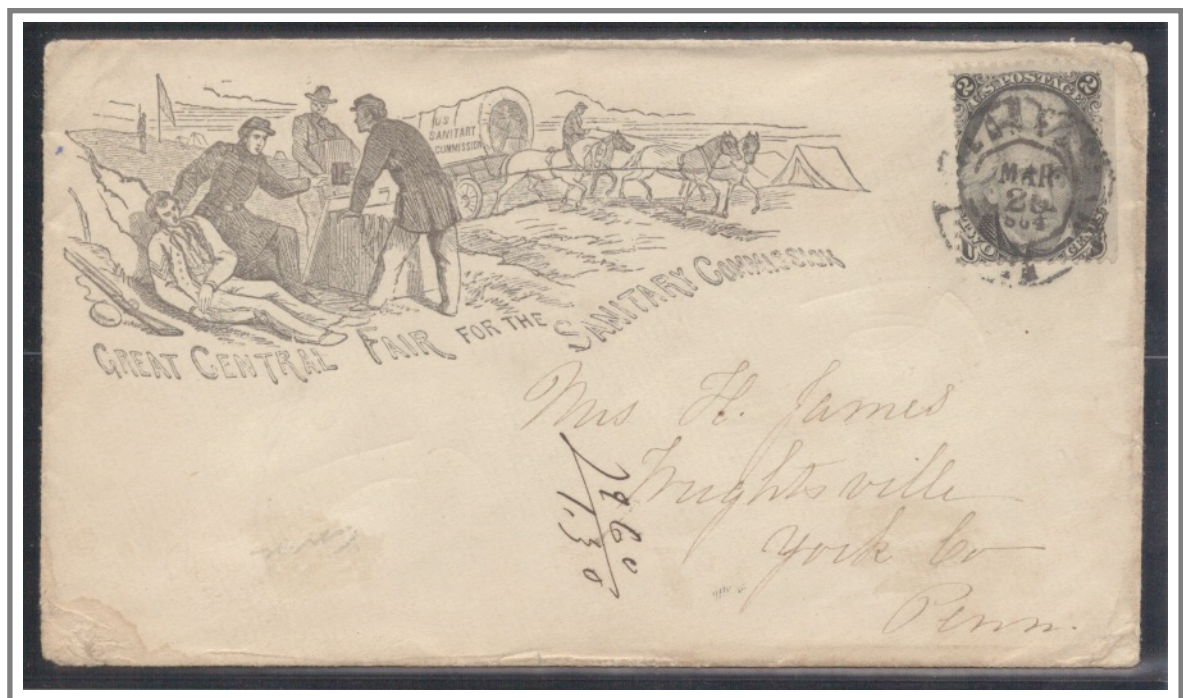 US
SANITARY
COMMISSION
GREAT CENTRAL FAIR FOR THE SANITARY COMMISSION
2 U.S. POSTAGE 2
MAR
28
Mrs H. James
Wrightsville
York Co
Penn.